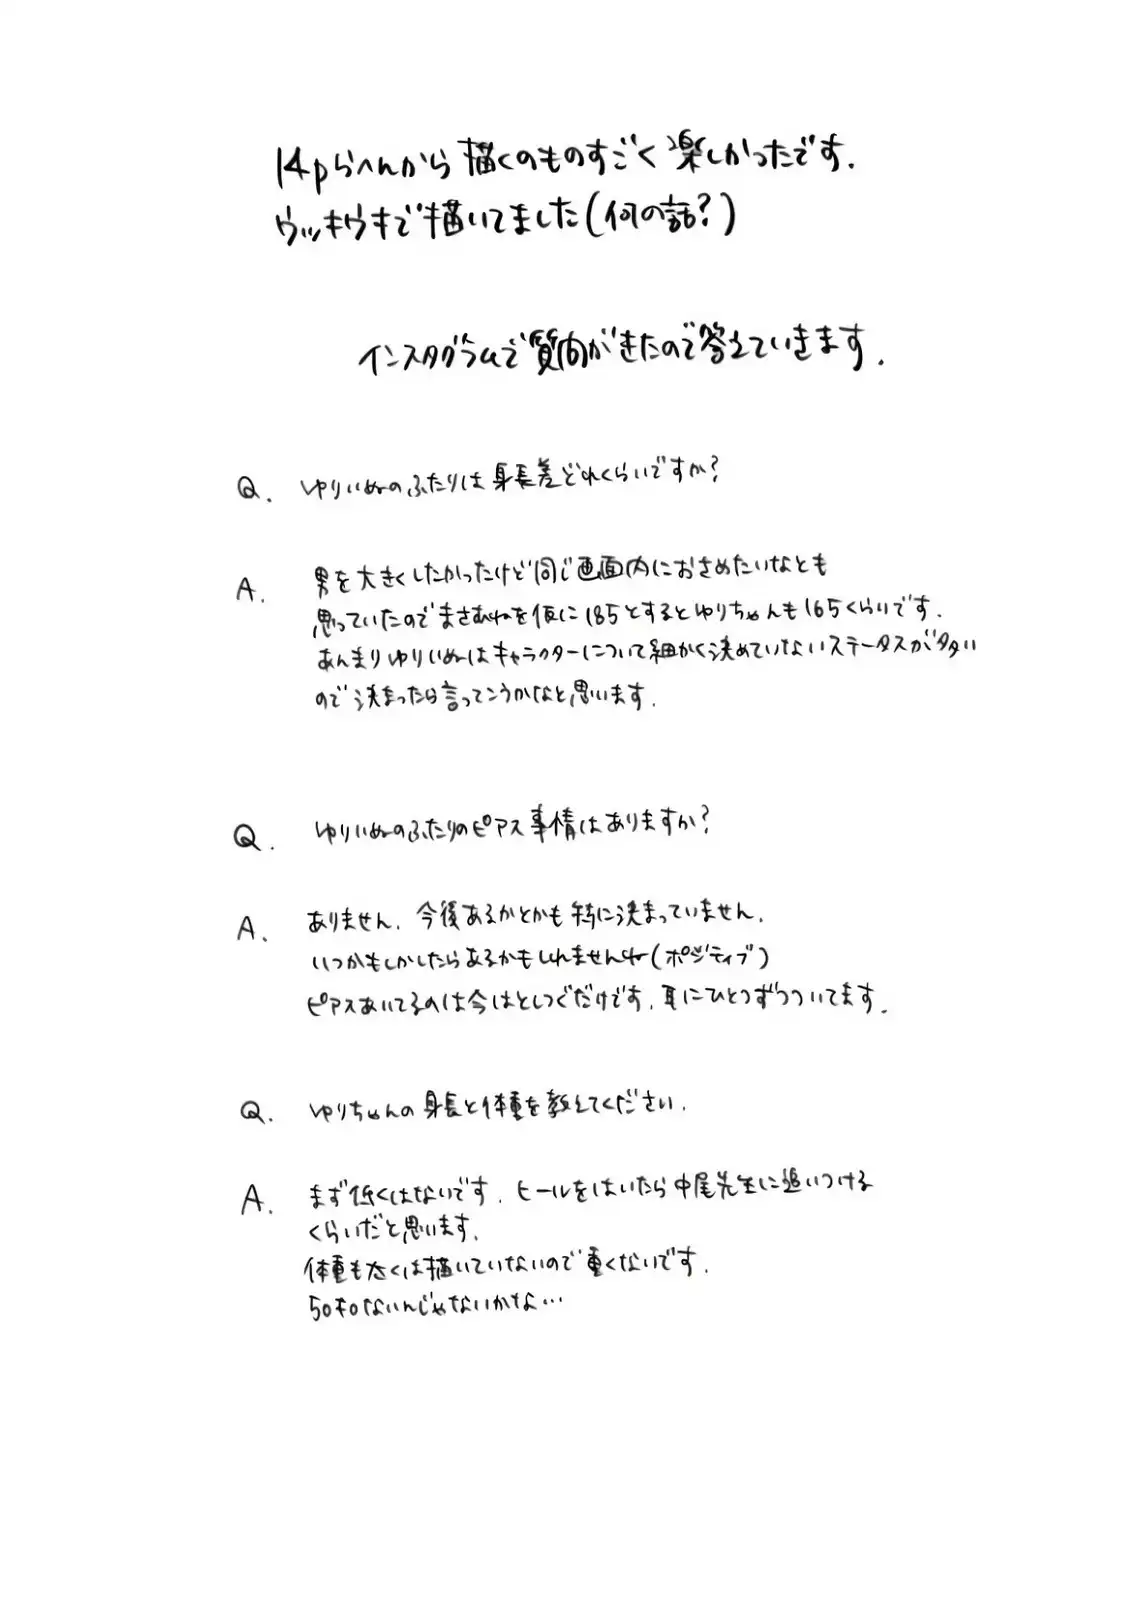 14pらへんから描くのものすごく楽しかったです.
ウッキウキで描いてました(何の話?)
インスタグラムで質問がきたので答えていきます.
Q. ゆりいぬのふたりは身長差どれくらいですか?
A. 男を大きくしたかったけど同じ画面内におさめたいなとも
思っていたのでまさむねを仮に185とするとゆりちゃんも165くらいです.
あんまりゆりいぬはキャラクターについて細かく決めていないステータスが多い
ので決まったら言ってこうかなと思います.
Q. ゆりいぬのふたりのピアス事情はありますか?
A. ありません. 今後あるかとかも特に決まっていません.
いつかもしかしたらあるかもしれませんね(ポジティブ)
ピアスあいてるのは今はとしつぐだけです. 耳にひとつずつついてます.
Q. ゆりちゃんの身長と体重を教えてください.
A. まず低くはないです. ヒールをはいたら中尾先生に追いつける
くらいだと思います.
体重も太くは描いていないので重くないです.
50キロないんじゃないかな…